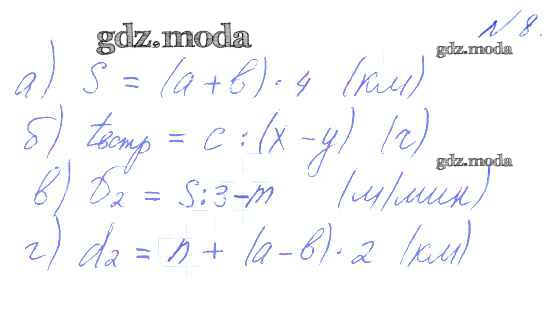 gdz.moda
N 8.
gdz.moda
а) S = (a + в) · 4 (км)
б) tвстр = c : (x - y) (ч)
gdz.moda
в) υ₂ = S : 3 - m (м/мин)
г) d₂ = n + (a - в) · 2 (км)